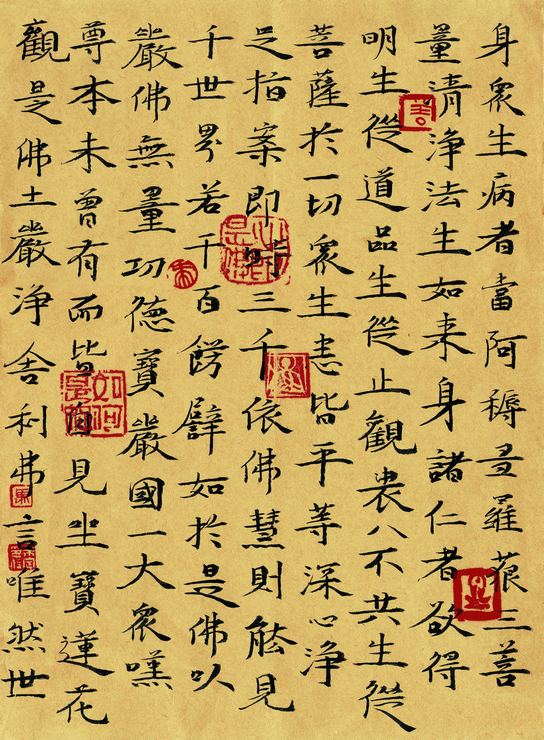 身眾生病者當阿耨多羅藐三菩
量清淨法生如来身諸仁者欲得
明生從道品生從止觀八不共生從
菩薩於一切眾生悉皆平等深心淨
足指案即時三千依佛慧則能見
千世界若千百餝譬如於是佛以
嚴佛無量功德寶嚴國一大眾嘆
尊本未曾有而皆自見坐寶蓮花
觀是佛土嚴淨舍利弗言唯然世